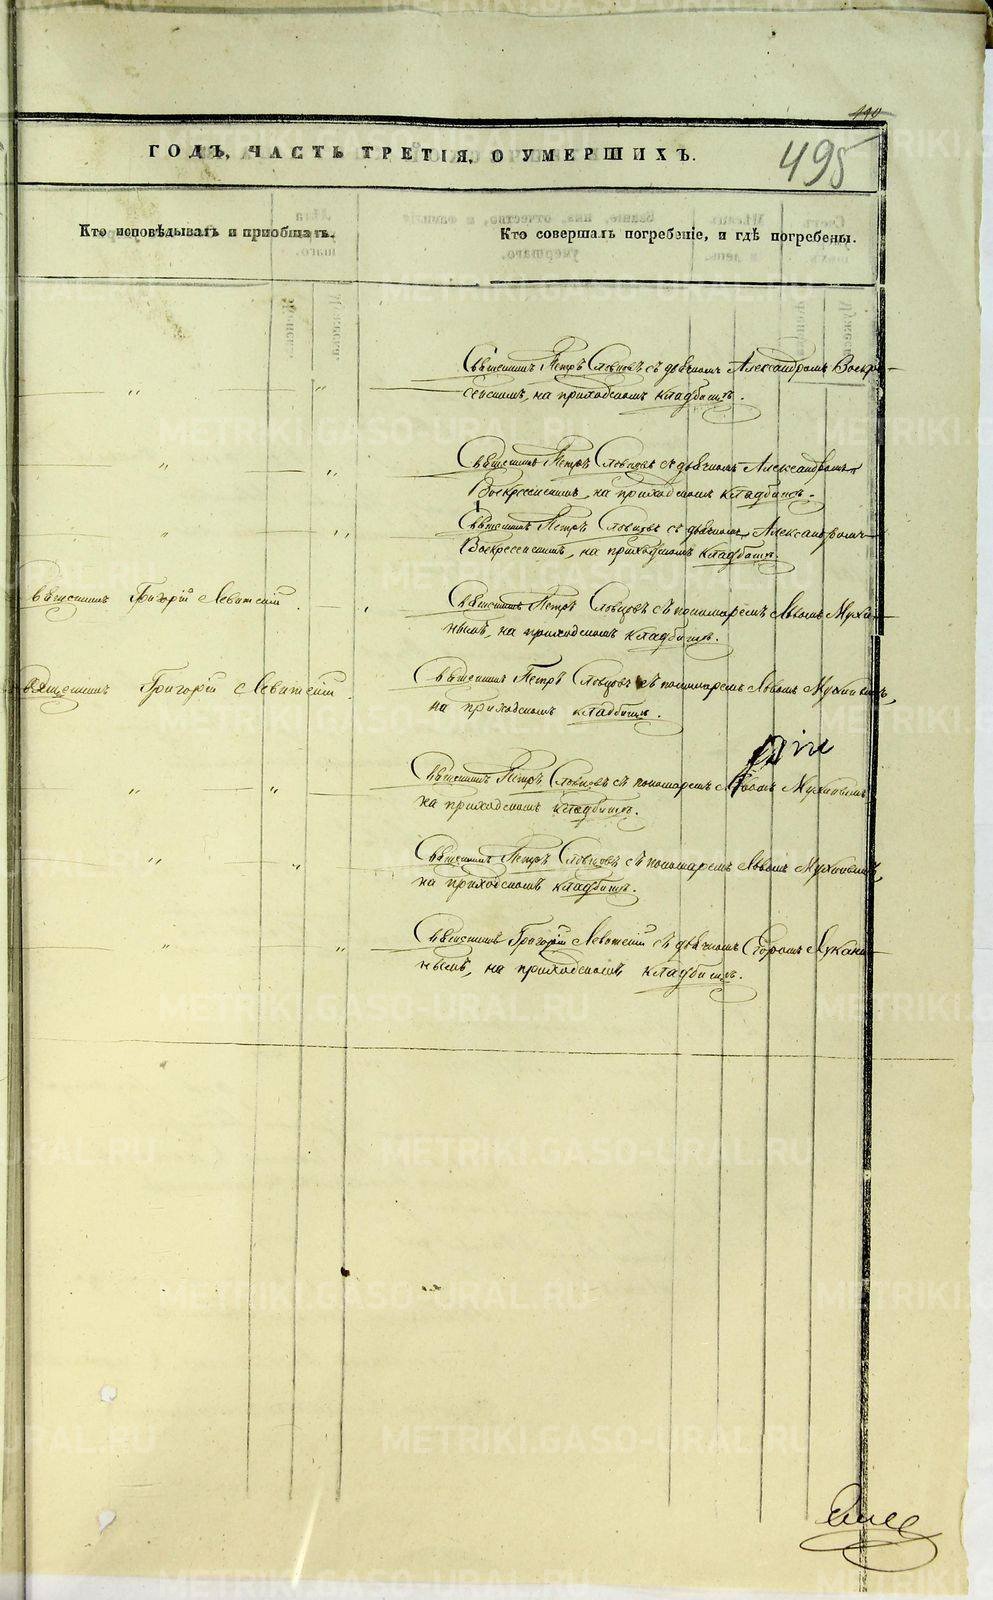 490
ГОДЪ, ЧАСТЬ ТРЕТІЯ, О УМЕРШИХЪ.
495
Кто исповѣдывалъ и пріобщалъ.
Кто совершалъ погребеніе, и гдѣ погребены.
Священникъ Петръ Словцовъ съ дьячкомъ Александромъ Воскре-
сенскимъ, на приходскомъ кладбищѣ.
Священникъ Петръ Словцовъ съ дьячкомъ Александромъ
Воскресенскимъ, на приходскомъ кладбищѣ.
Священникъ Петръ Словцовъ съ дьячкомъ Александромъ
Воскресенскимъ, на приходскомъ кладбищѣ.
Священникъ Григорій Левитскій
Священникъ Петръ Словцовъ съ пономаремъ Львомъ Мухи-
нымъ, на приходскомъ кладбищѣ.
Священникъ Григорій Левитскій
Священникъ Петръ Словцовъ съ пономаремъ Львомъ Мухинымъ,
на приходскомъ кладбищѣ.
Священникъ Петръ Словцовъ съ пономаремъ Львомъ Мухинымъ
на приходскомъ кладбищѣ.
Священникъ Петръ Словцовъ съ пономаремъ Львомъ Мухинымъ,
на приходскомъ кладбищѣ.
Священникъ Григорій Левитскій съ дьячкомъ Егоромъ Лукани-
нымъ, на приходскомъ кладбищѣ.
METRIKI.GASO-URAL.RU